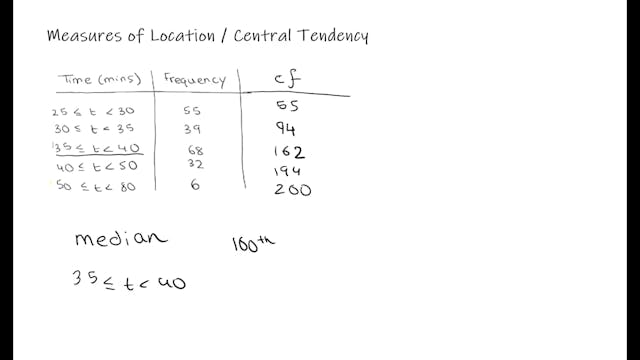 Measures of Location / Central Tendency
Time (mins) Frequency cf
25 ≤ t < 30 55 55
30 ≤ t < 35 39 94
35 ≤ t < 40 68 162
40 ≤ t < 50 32 194
50 ≤ t < 80 6 200
median 100th
35 ≤ t < 40